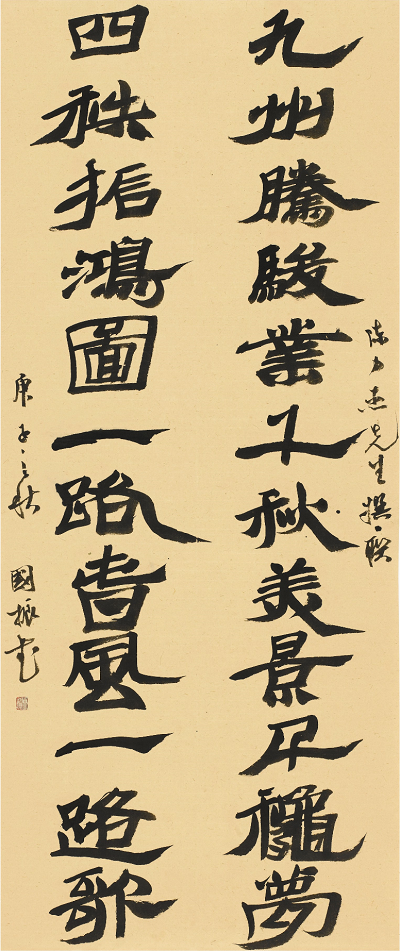 九州騰駿業千秋美景千龝夢
四秩振鴻圖一路旾風一路歌
先生撰聯
庚子之秋 國振書